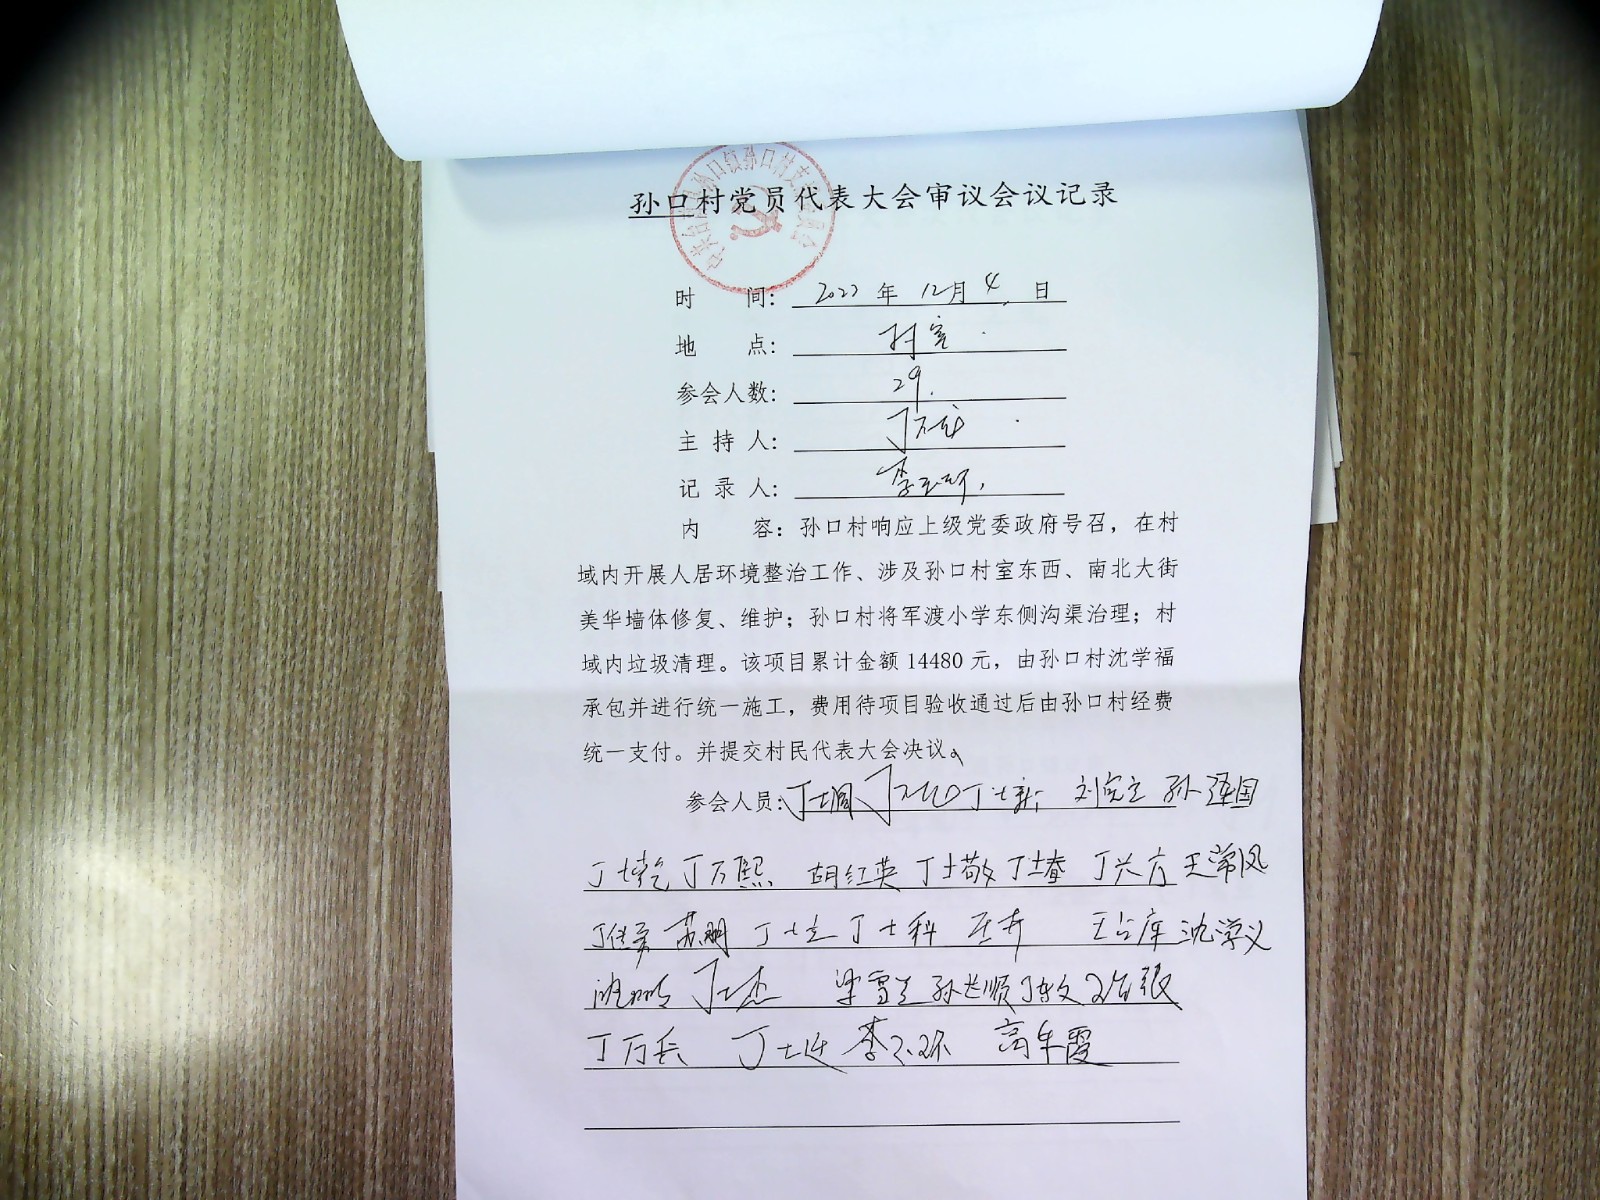 孙口村党员代表大会审议会议记录
时 间: 2022 年 12月 4 日
地 点: 村室
参会人数: 29.
主 持 人: 丁
记 录 人: 李
内 容: 孙口村响应上级党委政府号召, 在村
域内开展人居环境整治工作、涉及孙口村室东西、南北大街
美华墙体修复、维护; 孙口村将军渡小学东侧沟渠治理; 村
域内垃圾清理。该项目累计金额 14480 元, 由孙口村沈学福
承包并进行统一施工, 费用待项目验收通过后由孙口村经费
统一支付。并提交村民代表大会决议。
参会人员: 丁士新 刘宪立 孙泽国
丁士乾 丁万熙 胡红英 丁士敬 丁士春 丁兴方 王常风
苏明 丁士立 丁士科 王占库 沈学义
丁士杰 梁雪兰 孙长顺
丁万兵 丁士廷 李 高年霞